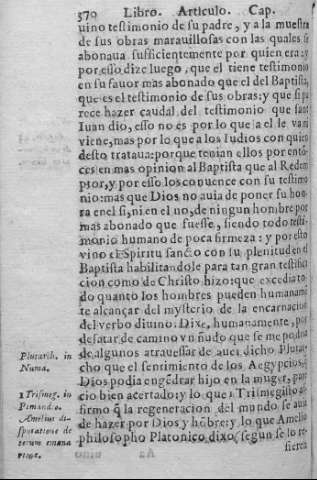 370 Libro. Articulo. Cap.
uino testimonio de su padre, y a la muestra
de sus obras marauillosas con las quales se
abonaua sufficientemente por quien era: y
por esso dize luego, que el tiene testimonio
en su fauor mas abonado que el del Baptista,
que es el testimonio de sus obras: y que si pa
rece hazer caudal del testimonio que sant
Iuan dio, esso no es por lo que a el le vaya
viene, mas por lo que a los Iudios con quien
desto trataua: porque tenian ellos por ento
ces en mas opinion al Baptista que al Redem
ptor, y por esso los conuence con su testimo
nio: mas que Dios no auia de poner su hon
ra en el si, ni en el no, de ningun hombre por
mas abonado que fuesse, siendo todo testi-
monio humano de poca firmeza: y por esto
vino el Spiritu sancto con su plenitud en el
Baptista habilitandole para tan gran testifica
cion como de Christo hizo: que excedia to
do quanto los hombres pueden humaname
te alcançar del mysterio de la encarnacion
del verbo diuino. Dixe, humanamente, por
desatar de camino vn ñudo que se me podria
de algunos atrauessar de auer dicho Plutar
cho que el sentimiento de los Aegypcios, q̃
Dios podia engẽdrar hijo en la muger, pare
cio bien acertado: y lo que Trismegisto af-
firmo q̃ la regeneracion del mundo se auia
de hazer por Dios y hombre, y lo que Amelio
philosopho Platonico dixo (segun se lo re-
fieren
Plutarch. in
Numa.
1 Trismeg. in
Pimandro.
Amelius di-
sputatione de
rerum
Aa